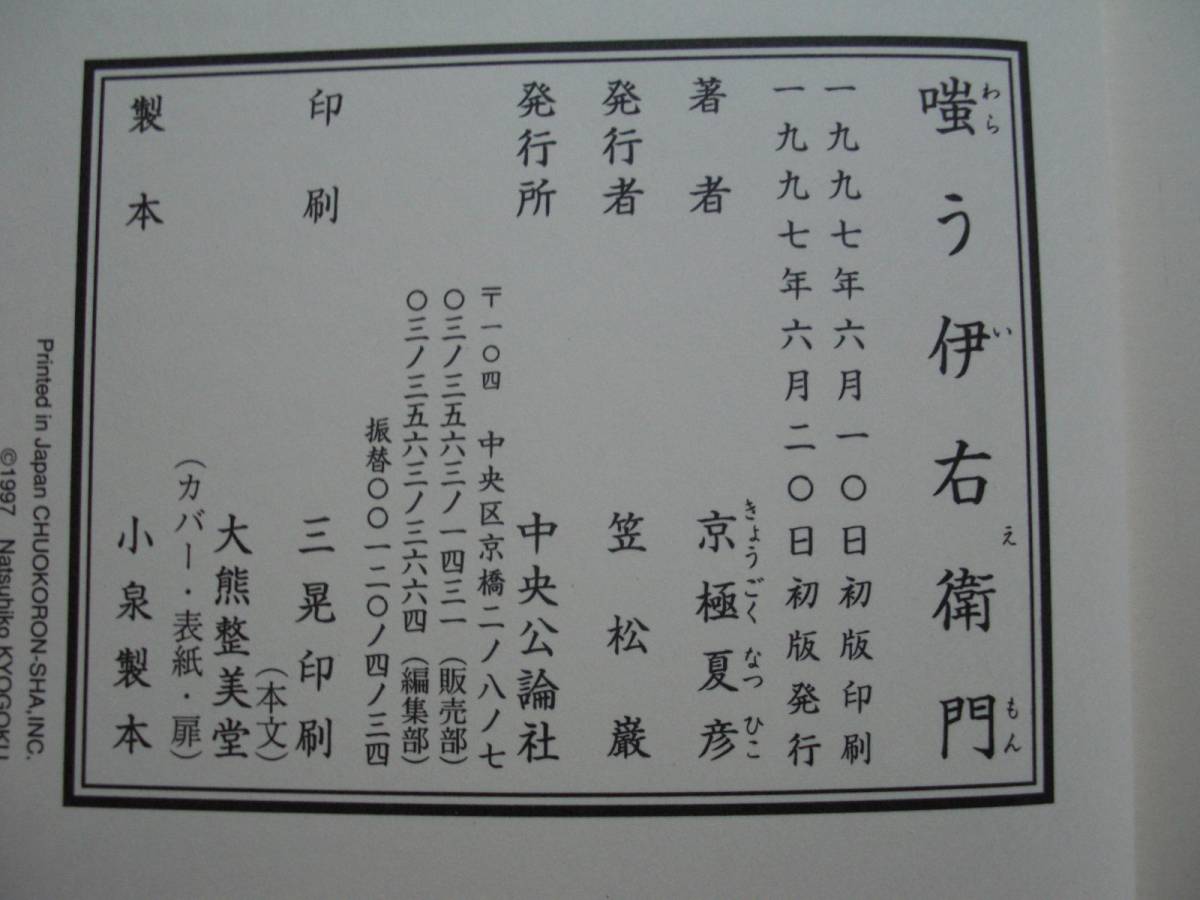 嗤う伊右衛門
わら い え もん
一九九七年六月一〇日初版印刷
一九九七年六月二〇日初版発行
著者 京極夏彦
きょうごく なつ ひこ
発行者 笠松巌
発行所 中央公論社
〒一〇四 中央区京橋二ノ八ノ七
〇三ノ三五六三ノ一四三一（販売部）
〇三ノ三五六三ノ三六六四（編集部）
振替〇〇一二〇ノ四ノ三四
印刷 三晃印刷
（本文）
大熊整美堂
（カバー・表紙・扉）
製本 小泉製本
Printed in Japan CHUOKORON-SHA,INC.
©1997 Natsuhiko KYOGOKU